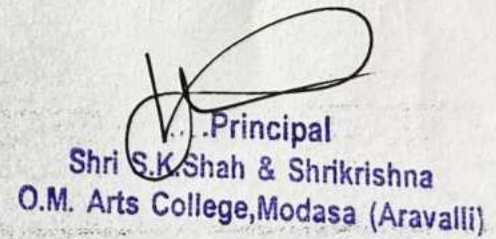 ....Principal
Shri S.K.Shah & Shrikrishna
O.M. Arts College,Modasa (Aravalli)